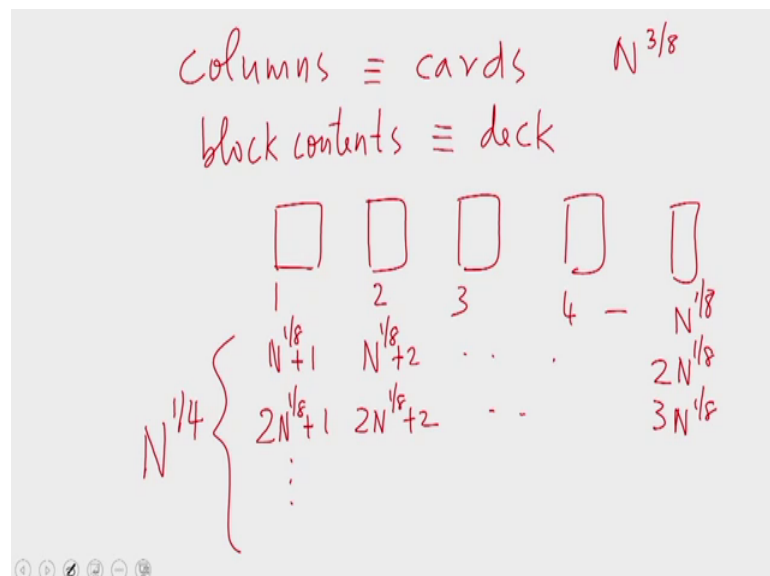 columns ≡ cards N^{3/8}
block contents ≡ deck
1 2 3 4 – N^{1/8}
N^{1/8}+1 N^{1/8}+2 .. . 2N^{1/8}
N^{1/4} { 2N^{1/8}+1 2N^{1/8}+2 .. 3N^{1/8}
⋮